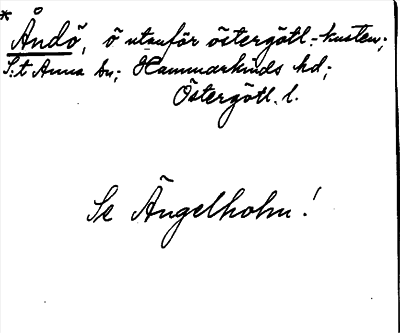 * Åndö, ö utanför östergötl.-kusten;
S:t Anna sn; Hammarkinds hd;
Östergötl. l.
Se Ängelholm!